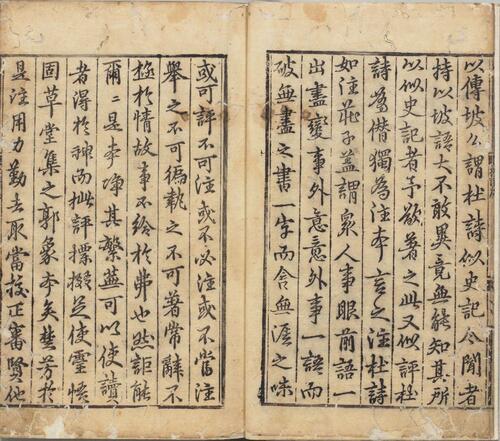 以傳坡公謂杜詩似史記今聞者
特以坡語大不敢異竟無能知其所
以似史記者予欲著之此又似評杜
詩為僭獨為注本言之注杜詩
如注莊子蓋謂衆人事眼前語一
出盡變事外意意外事一語而
破無盡之書一字而含無涯之味
或可評不可注或不必注或不當注
舉之不可徧執之不可著常辭不
極於情故事不給於弗也然詎能
爾爾是本淨其繁蕪可以使讀
者得於神而批評摽掇足使靈悟
固草堂集之郭象本矣楚芳於
是注用力勤去取當校正審賢他